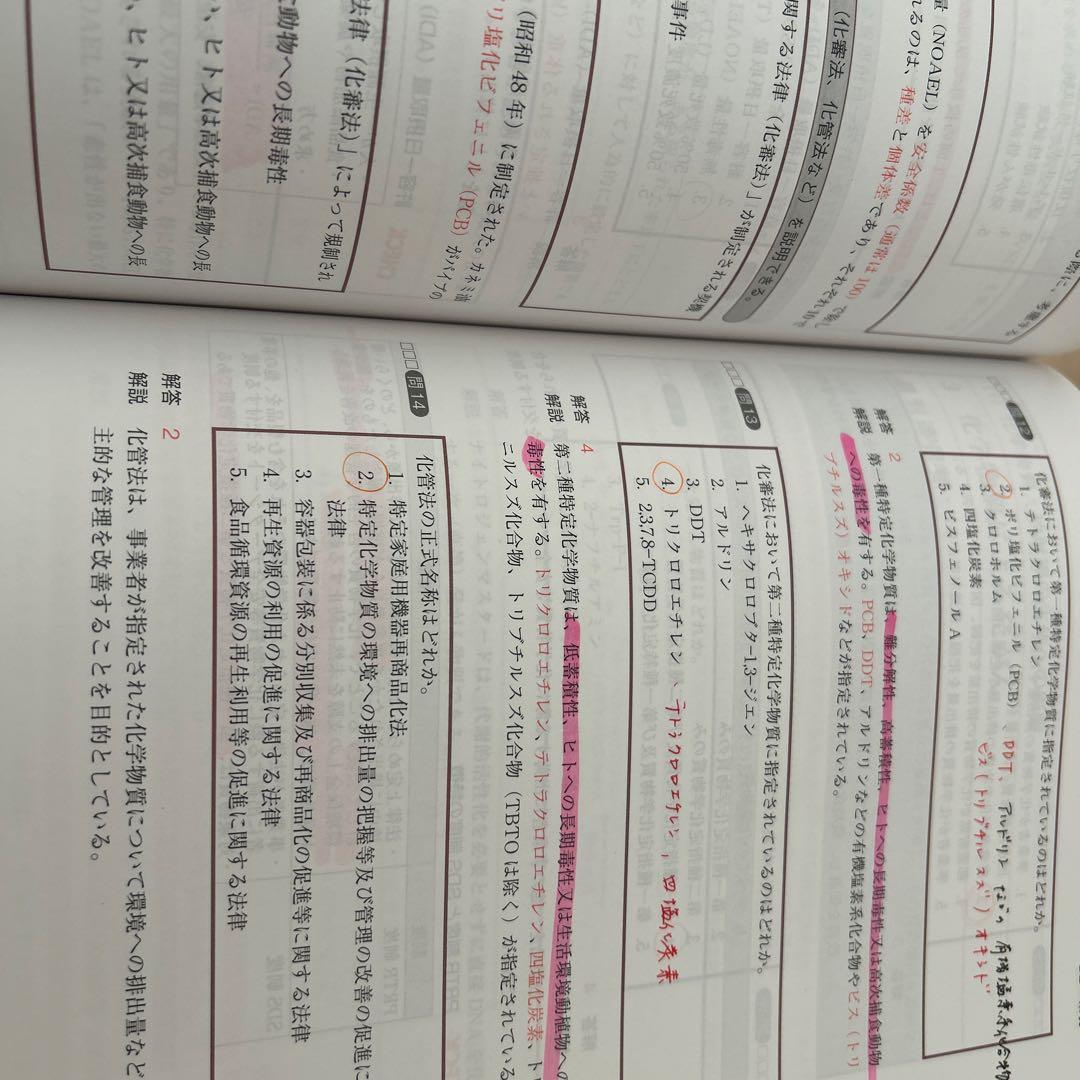 量（NOAEL）を安全係数（通常は100）で除し
れるのは、種差と個体差であり、それぞれ10ず
（化審法、化管法など）を説明できる。
関する法律（化審法）」が制定される契機
事件
（昭和48年）に制定された。カネミ油
リ塩化ビフェニル（PCB）がパイプの
法律（化審法）」によって規制され
動物への長期毒性
、ヒト又は高次捕食動物への長
、ヒト又は高次捕食動物への長
化審法において第一種特定化学物質に指定されているのはどれか。
1. テトラクロロエチレン
2. ポリ塩化ビフェニル（PCB）
DDT、アルドリン などの 有機塩素系化合物
3. クロロホルム
ビス（トリブチルスズ）オキシド
4. 四塩化炭素
5. ビスフェノールA
解答 2
解説 第一種特定化学物質は、難分解性、高蓄積性、ヒトへの長期毒性又は高次捕食動物
への毒性を有する。PCB、DDT、アルドリンなどの有機塩素系化合物やビス（トリ
ブチルスズ）オキシドなどが指定されている。
問13
化審法において第二種特定化学物質に指定されているのはどれか。
1. ヘキサクロロブタ-1,3-ジエン
2. アルドリン
3. DDT
4. トリクロロエチレン、テトラクロロエチレン、四塩化炭素
5. 2,3,7,8-TCDD
解答 4
解説 第二種特定化学物質は、低蓄積性、ヒトへの長期毒性又は生活環境動植物への
毒性を有する。トリクロロエチレン、テトラクロロエチレン、四塩化炭素、ト
ニルスズ化合物、トリブチルスズ化合物（TBTOは除く）が指定されている
問14
化管法の正式名称はどれか。
1. 特定家庭用機器再商品化法
2. 特定化学物質の環境への排出量の把握等及び管理の改善の促進に
法律
3. 容器包装に係る分別収集及び再商品化の促進等に関する法律
4. 再生資源の利用の促進に関する法律
5. 食品循環資源の再生利用等の促進に関する法律
解答 2
解説 化管法は、事業者が指定された化学物質について環境への排出量など
主的な管理を改善することを目的としている。